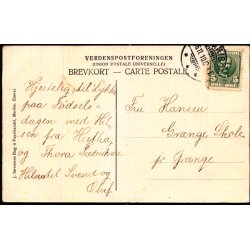 VERDENSPOSTFORENINGEN
(UNION POSTALE UNIVERSELLE)
BREVKORT – CARTE POSTALE
Hjertelig til Lykke
paa Fødsels-
dagen med Hil
sen fra Hertha
og Thora Frederikne
Hilmihel Svend og
Oluf
Fru Hansen
Grange Skole
pr Grange
5